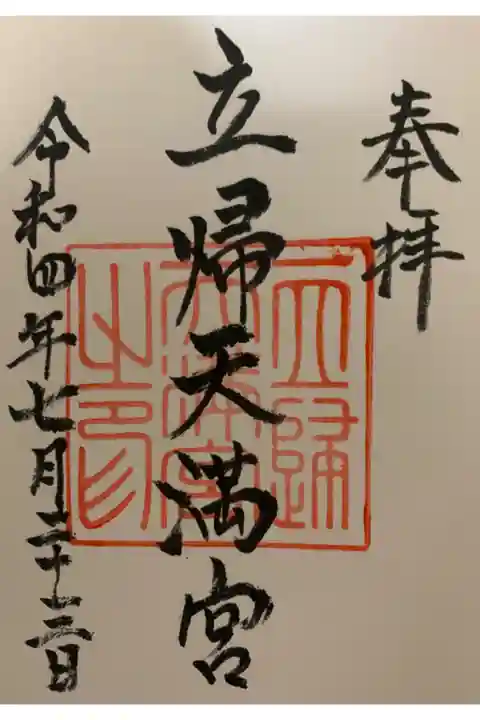 奉拝
立帰天満宮
立歸天満宮之印
令和四年七月二十三日